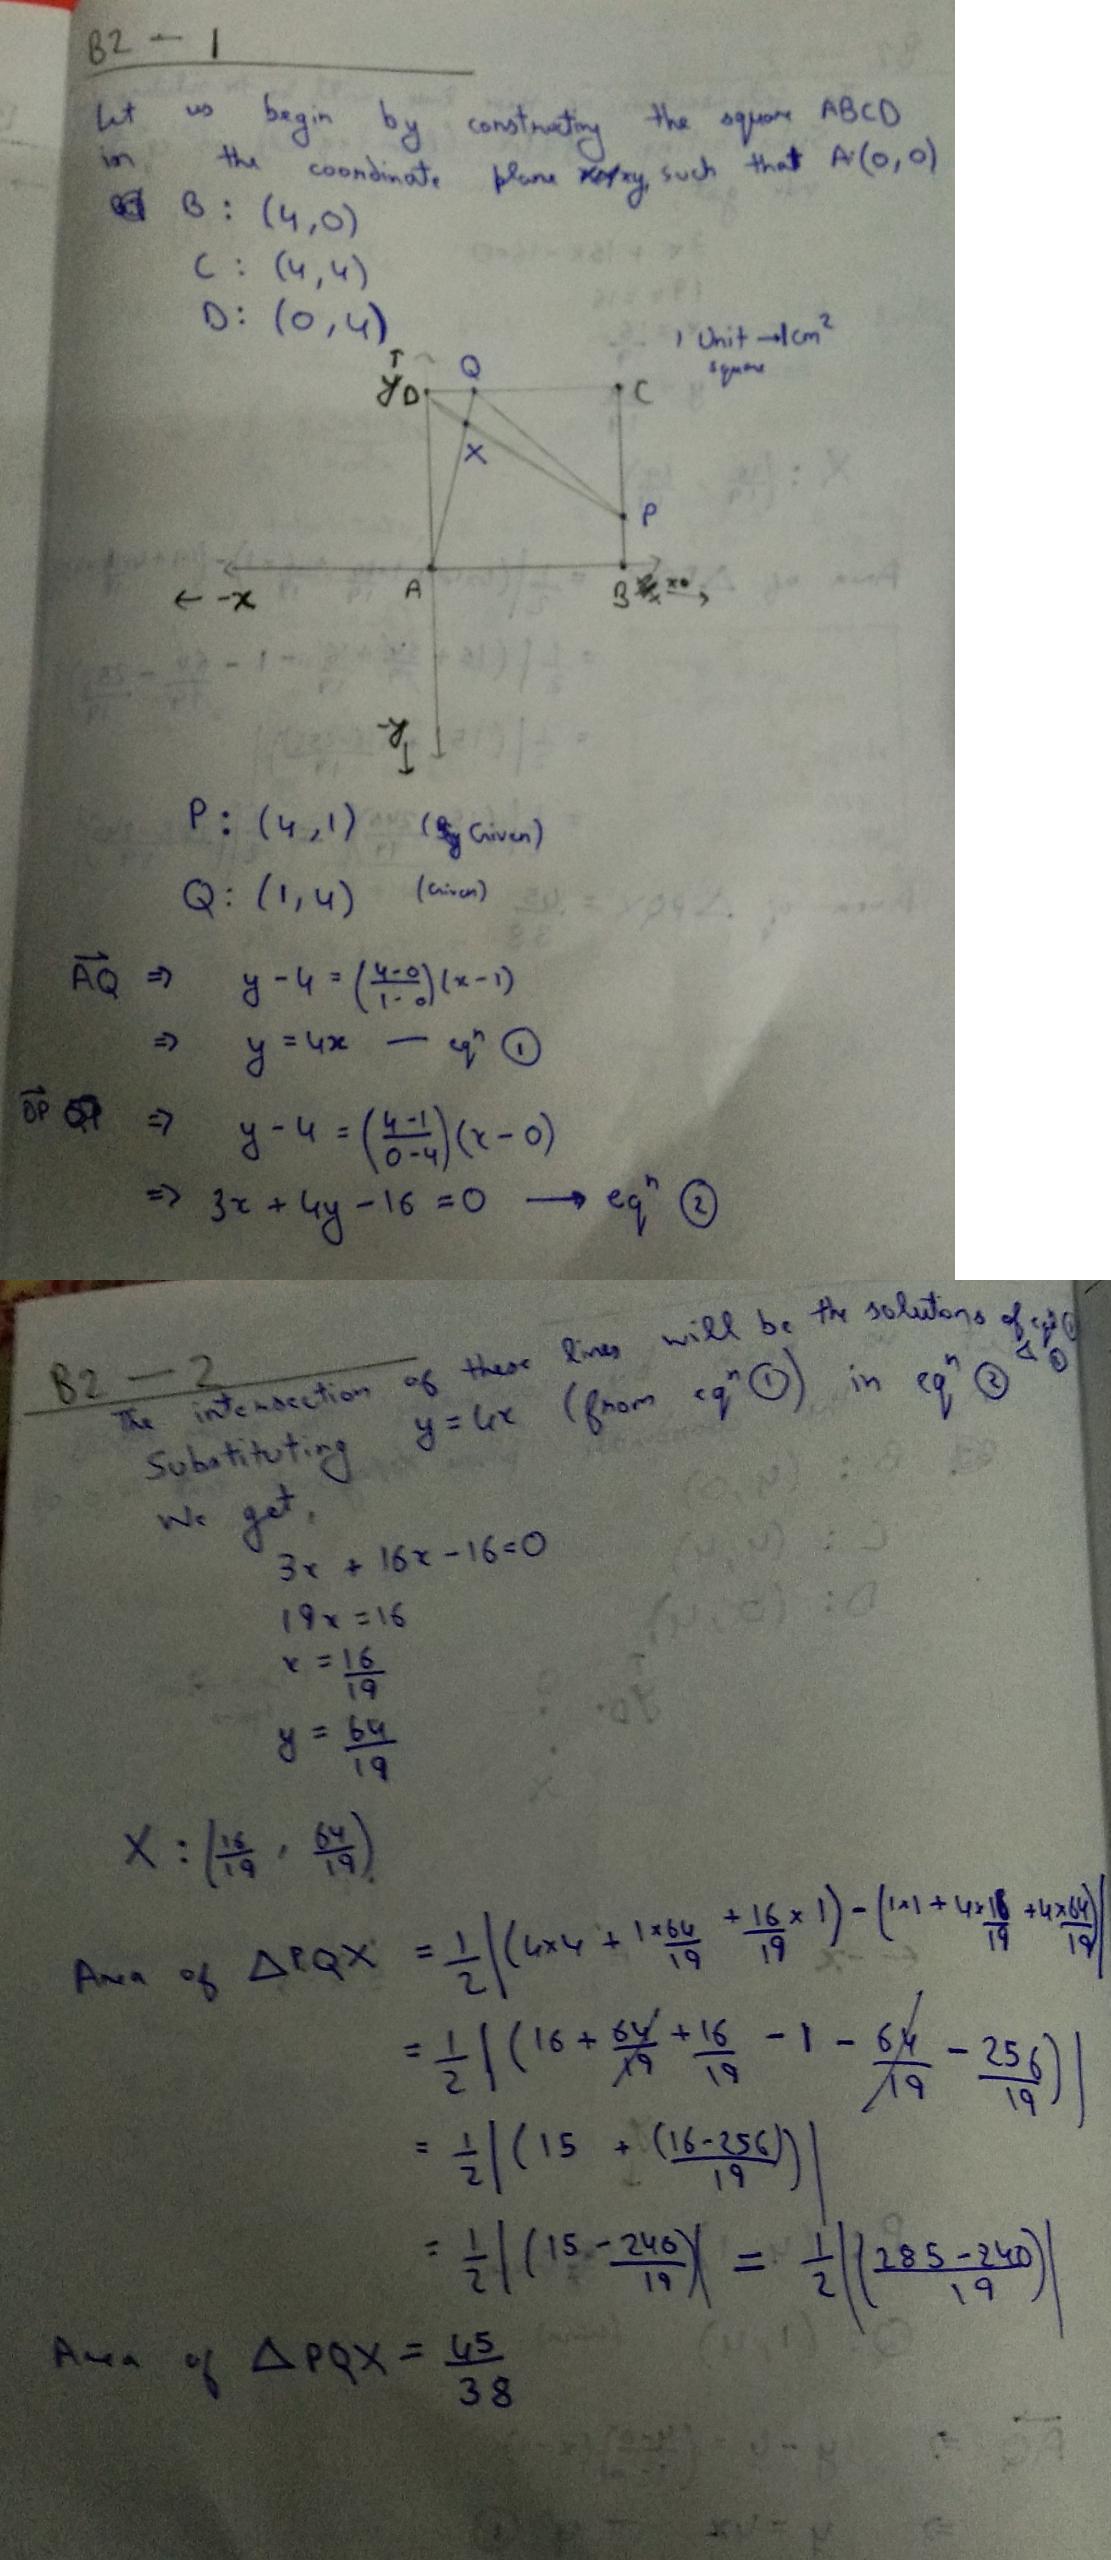 B2 - 1
Let us begin by constructing the square ABCD
in the coordinate plane xy, such that A:(0,0)
B : (4,0)
C : (4,4)
D: (0,4)
1 Unit → 1 cm²
square
y
D Q C
X
P
A B
← -x x →
-y
P: (4,1) (Given)
Q: (1,4) (Given)
AQ ⇒ y - 4 = (4-0/1-0)(x-1)
⇒ y = 4x — eqⁿ ①
DP ⇒ y - 4 = (4-1/0-4)(x-0)
⇒ 3x + 4y - 16 = 0 → eqⁿ ②
B2 - 2
The intersection of these lines will be the solutions of eqⁿ ① & ②
Substituting y = 4x (from eqⁿ ①) in eqⁿ ②
We get,
3x + 16x - 16 = 0
19x = 16
x = 16/19
y = 64/19
X : (16/19, 64/19)
Area of △PQX = 1/2 |(4×4 + 1×64/19 + 16/19×1) - (1×1 + 4×16/19 + 4×64/19)|
= 1/2 |(16 + 64/19 + 16/19 - 1 - 64/19 - 256/19)|
= 1/2 |(15 + (16-256)/19)|
= 1/2 |(15 - 240/19)| = 1/2 |(285-240/19)|
Area of △PQX = 45/38